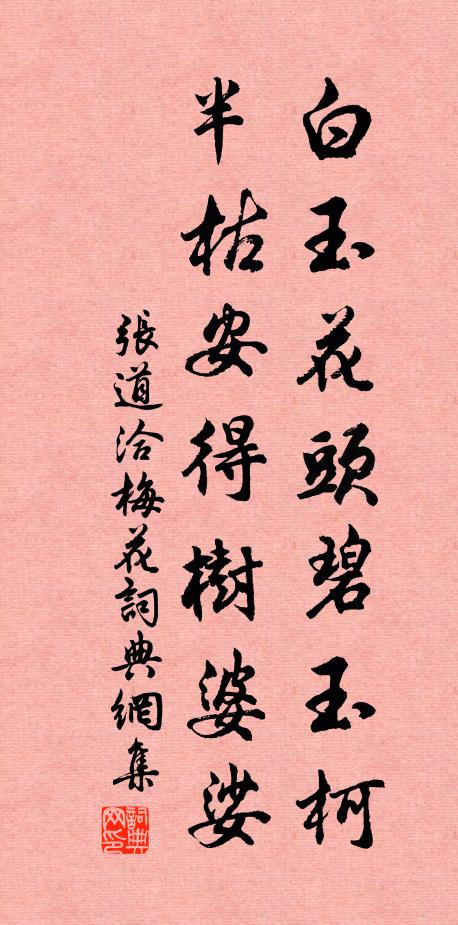 白玉花頭碧玉柯
半枯安得樹婆娑
張道洽梅花詞典網集
詞典網印